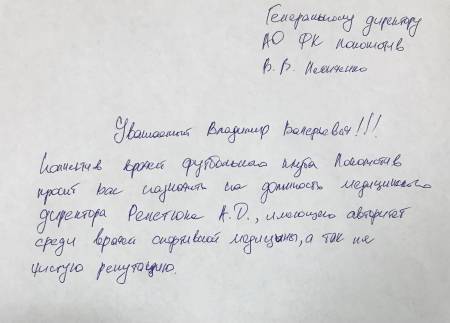 Генеральному директору
АО ФК Локомотив
В. В. Леонченко
Уважаемый Владимир Валерьевич!!!
Коллектив врачей футбольного клуба Локомотив
просит вас назначить на должность медицинского
директора Ренстюка А.D., имеющего авторитет
среди врачей спортивной медицины, а так же
чистую репутацию.